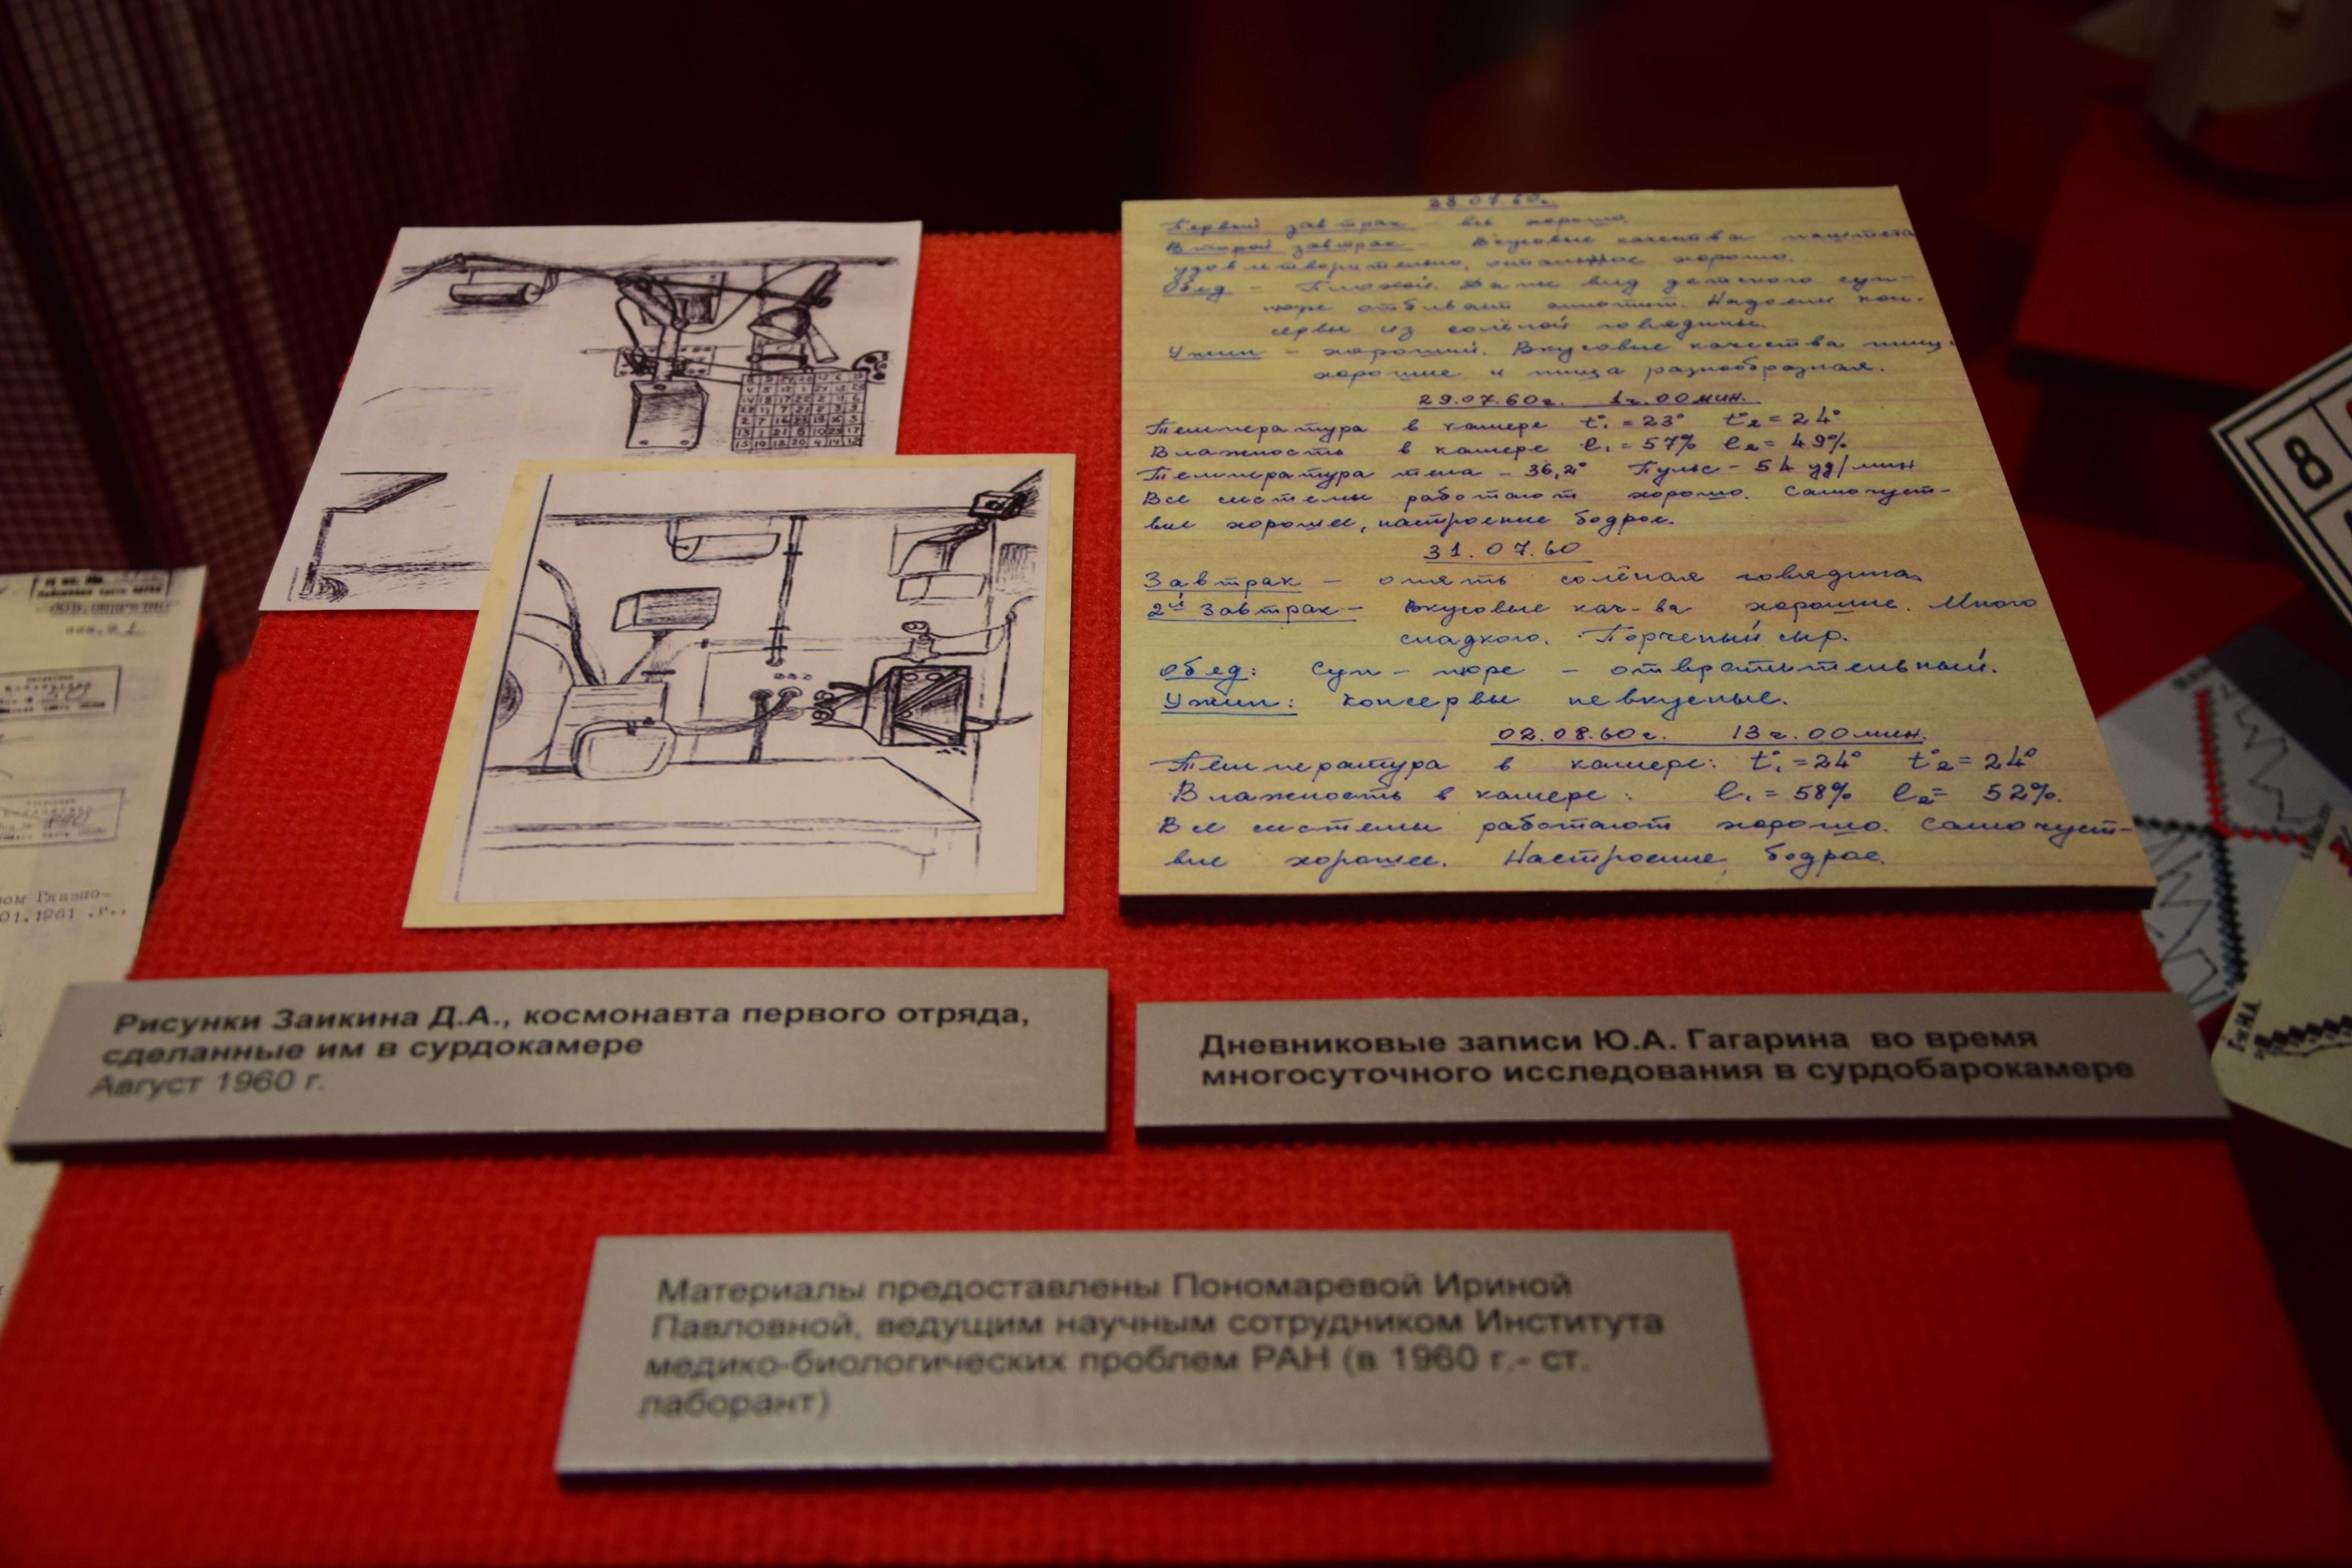 28.07.60г.
Первый завтрак – всё хорошо.
Второй завтрак – Вкусовые качества паштета
удовлетворительно, остальное хорошо.
Обед – Плохой. Даже вид детского суп-
пюре отбивает аппетит. Надоели кон-
сервы из солёной говядины.
Ужин – хороший. Вкусовые качества пищи
хорошие и пища разнообразная.
29.07.60г. 1ч.00мин.
Температура в камере t°₁ = 23° t°₂ = 24°
Влажность в камере e₁ = 57% e₂ = 49%
Температура тела – 36,2° Пульс – 54 уд/мин
Все системы работают хорошо. Самочуст-
вие хорошее, настроение бодрое.
31.07.60
Завтрак – опять солёная говядина
2й завтрак – Вкусовые кач-ва хорошие. Много
сладкого. Порченый сыр.
Обед: Суп – пюре – отвратительный.
Ужин: Консервы невкусные.
02.08.60г. 13ч.00мин.
Температура в камере: t°₁ = 24° t°₂ = 24°
Влажность в камере: e₁ = 58% e₂ = 52%.
Все системы работают хорошо. Самочуст-
вие хорошее. Настроение бодрое.
8
01.1961 .г.,
Рисунки Заикина Д.А., космонавта первого отряда,
сделанные им в сурдокамере
Август 1960 г.
Дневниковые записи Ю.А. Гагарина во время
многосуточного исследования в сурдобарокамере
Материалы предоставлены Пономаревой Ириной
Павловной, ведущим научным сотрудником Института
медико-биологических проблем РАН (в 1960 г.- ст.
лаборант)